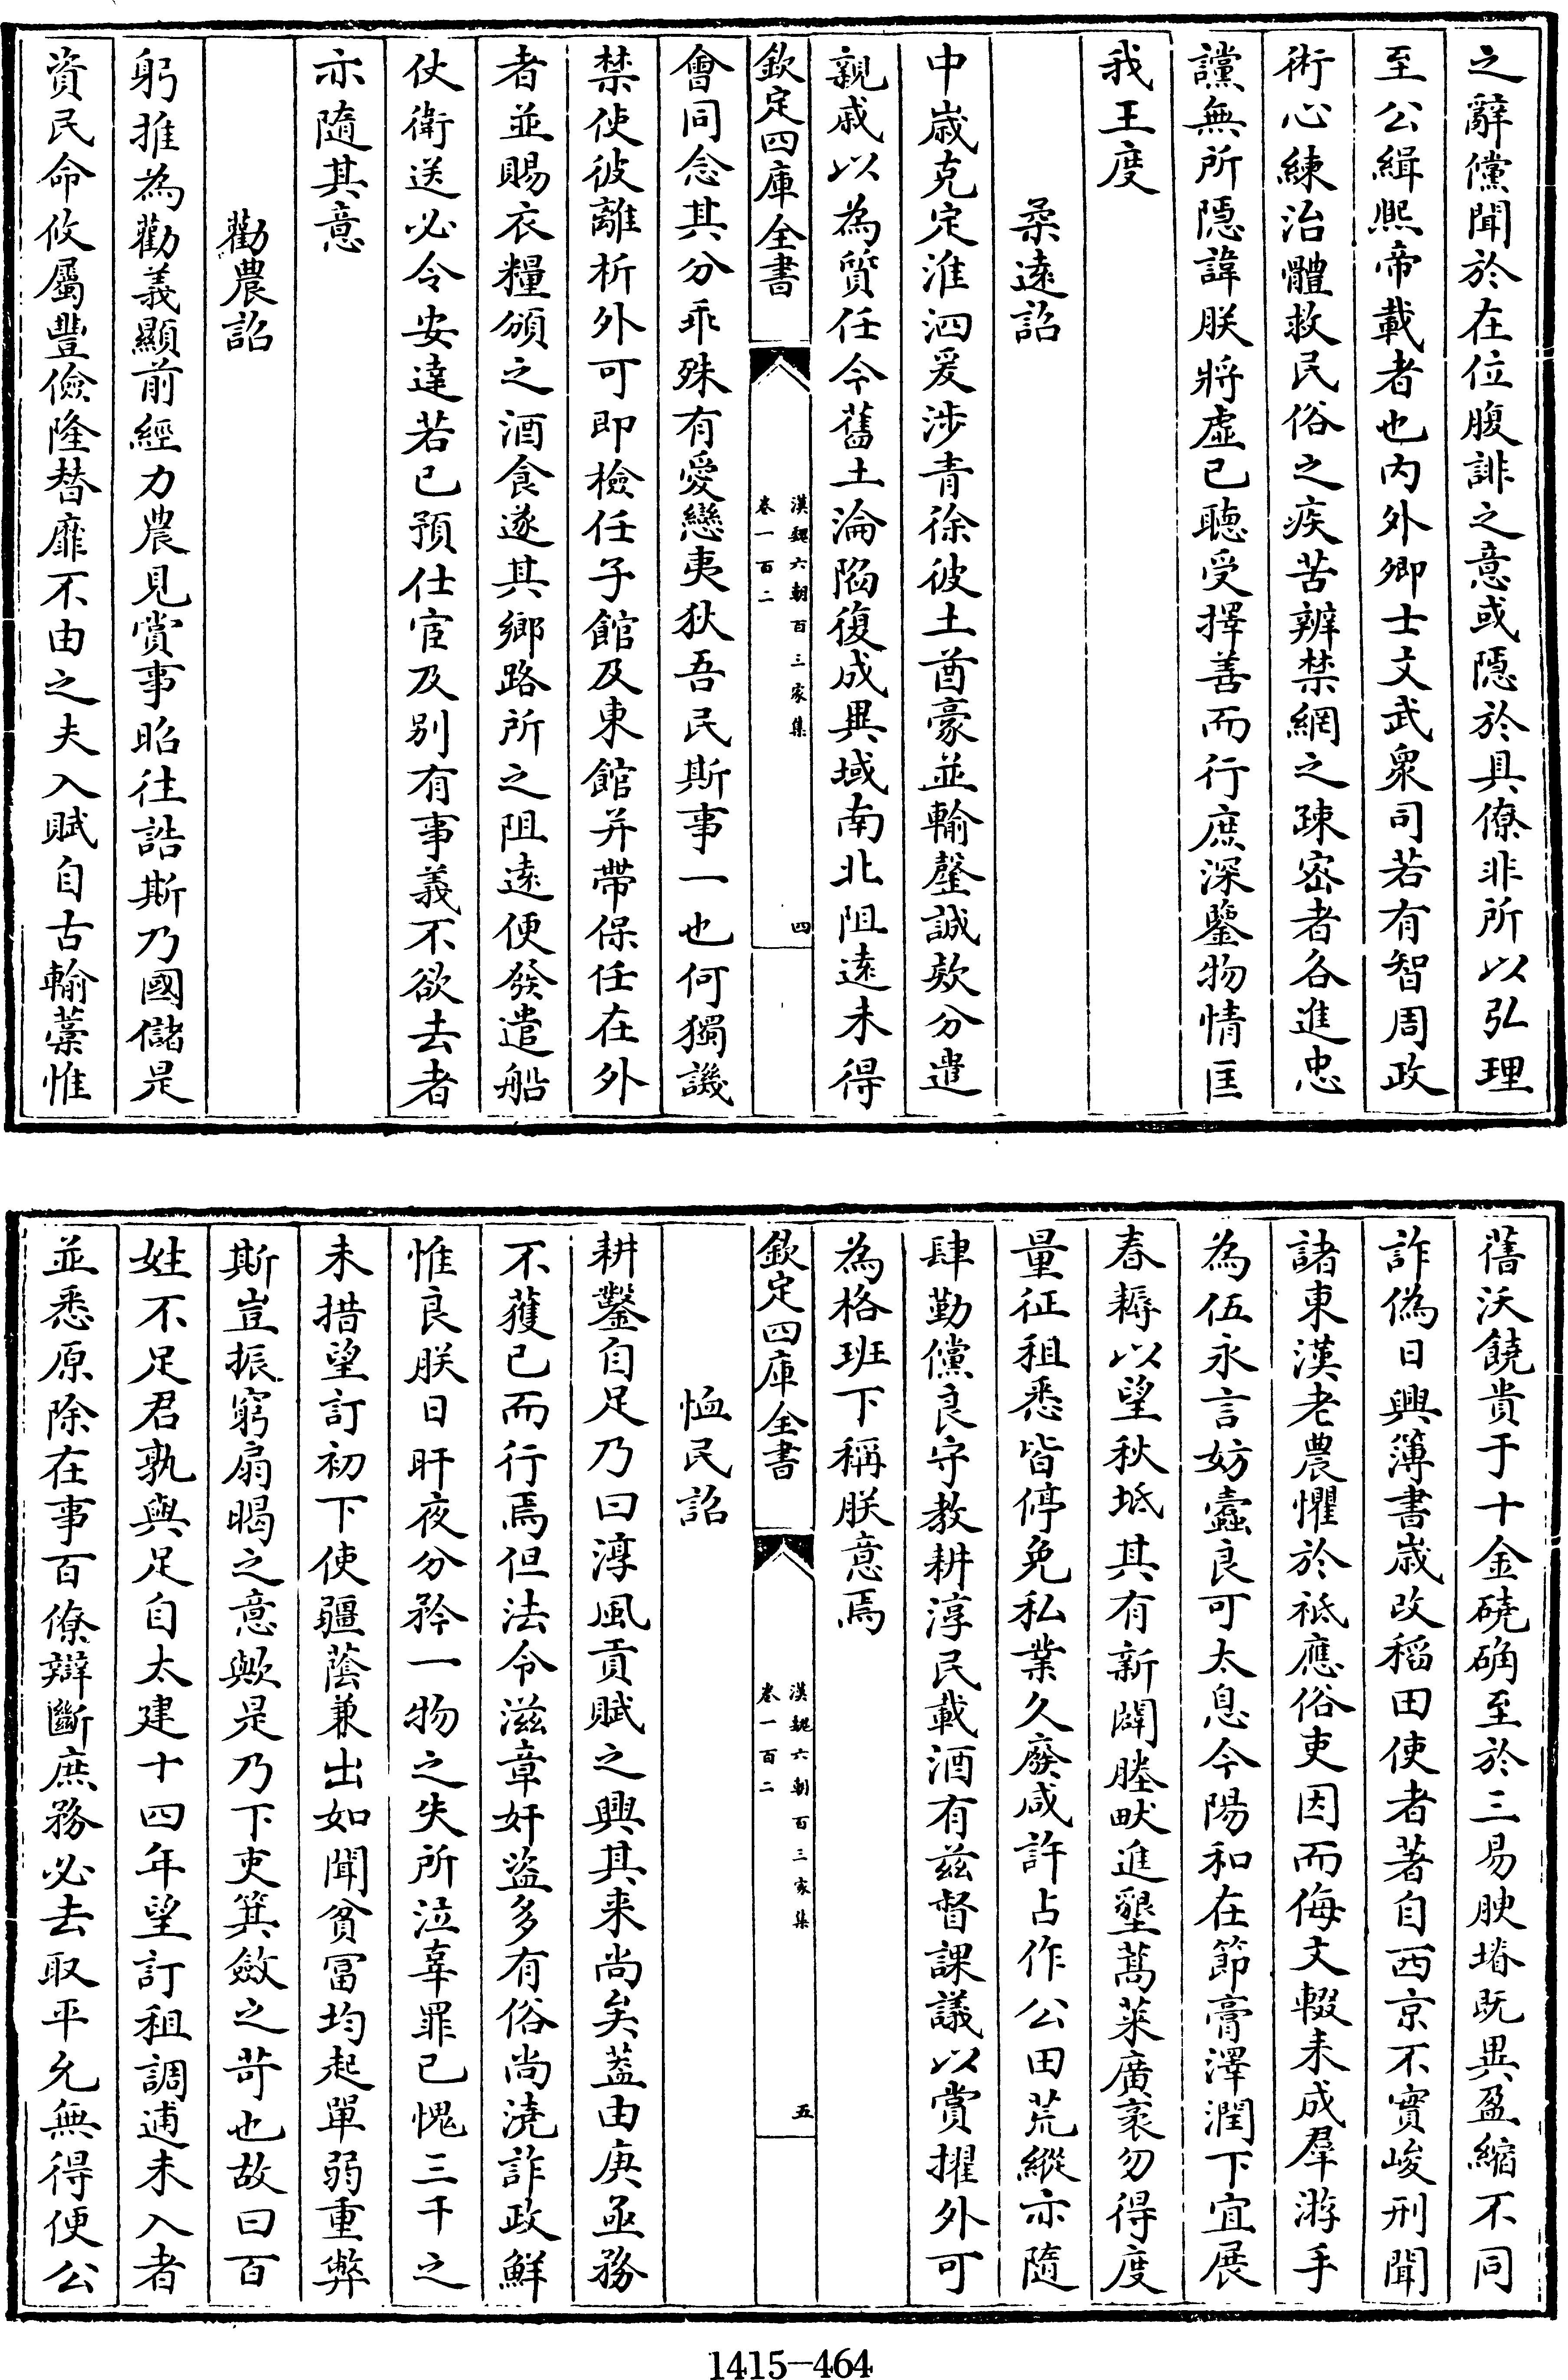 之辭儻聞於在位腹誹之意或隱於具僚非所以弘理
至公緝熙帝載者也内外卿士文武衆司若有智周政
術心練治體救民俗之疾苦辨禁網之疎宻者各進忠
讜無所隠諱朕將虚己聽受擇善而行庶深鑒物情匡
我王度
柔逺詔
中嵗克定淮泗爰渉青徐彼土酋豪並輸罄誠欵分遣
親戚以為質任今舊土淪陷復成異域南北阻逺未得
欽定四庫全書
漢魏六朝百三家集
卷一百二
四
會同念其分乖殊有愛戀夷狄吾民斯事一也何獨譏
禁使彼離析外可即檢任子館及東館并帶保任在外
者並賜衣糧頒之酒食遂其鄉路所之阻逺便發遣船
仗衛送必令安達若已預仕宦及别有事義不欲去者
亦隨其意
勸農詔
躬推為勸義顯前經力農見賞事昭往誥斯乃國儲是
資民命攸屬豐儉隆替靡不由之夫入賦自古輸藁惟
舊沃饒貴于十金磽确至於三易腴塉既異盈縮不同
詐偽日興簿書嵗改稻田使者著自西京不實峻刑聞
諸東漢老農懼於祗應俗吏因而侮文輟耒成羣游手
為伍永言妨蠹良可太息今陽和在節膏澤潤下宜展
春耨以望秋坻其有新闢塍畎進墾蒿萊廣袤勿得度
量征租悉皆停免私業久廢咸許占作公田荒縱亦隨
肆勤儻良守教耕淳民載酒有兹督課議以賞擢外可
為格班下稱朕意焉
欽定四庫全書
漢魏六朝百三家集
卷一百二
五
恤民詔
耕鑿自足乃曰淳風貢賦之興其来尚矣葢由庚亟務
不獲已而行焉但法令滋章奸盜多有俗尚澆詐政鮮
惟良朕日旰夜分矜一物之失所泣辜罪已愧三千之
未措望訂初下使彊蔭兼出如聞貧富均起單弱重弊
斯豈振窮扇暍之意歟是乃下吏箕斂之苛也故曰百
姓不足君孰與足自太建十四年望訂租調逋未入者
並悉原除在事百僚辯斷庶務必去取平允無得便公
1415—464